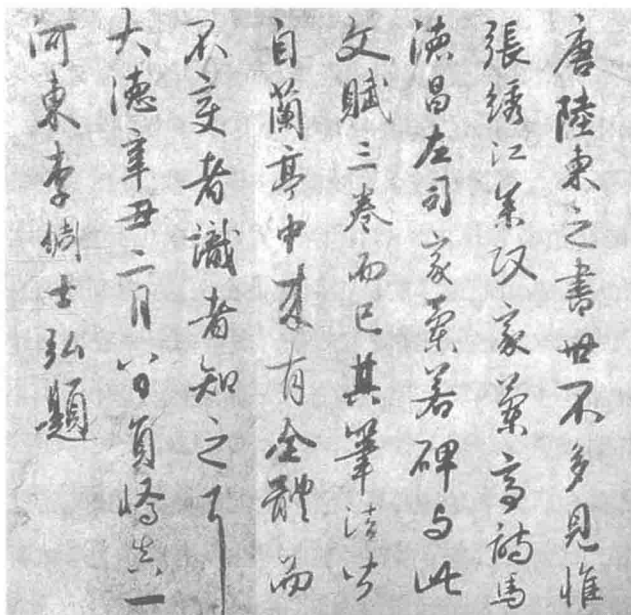 唐陸東之書世不多見惟
張綉江箕政家蘭亭詩馬
德昌左司家蘭若碑与此
文賦三卷而已其筆法皆
自蘭亭中來有全體而
不变者識者知之耳
大德辛丑二月八日員嶠真一
河東李倜士弘題